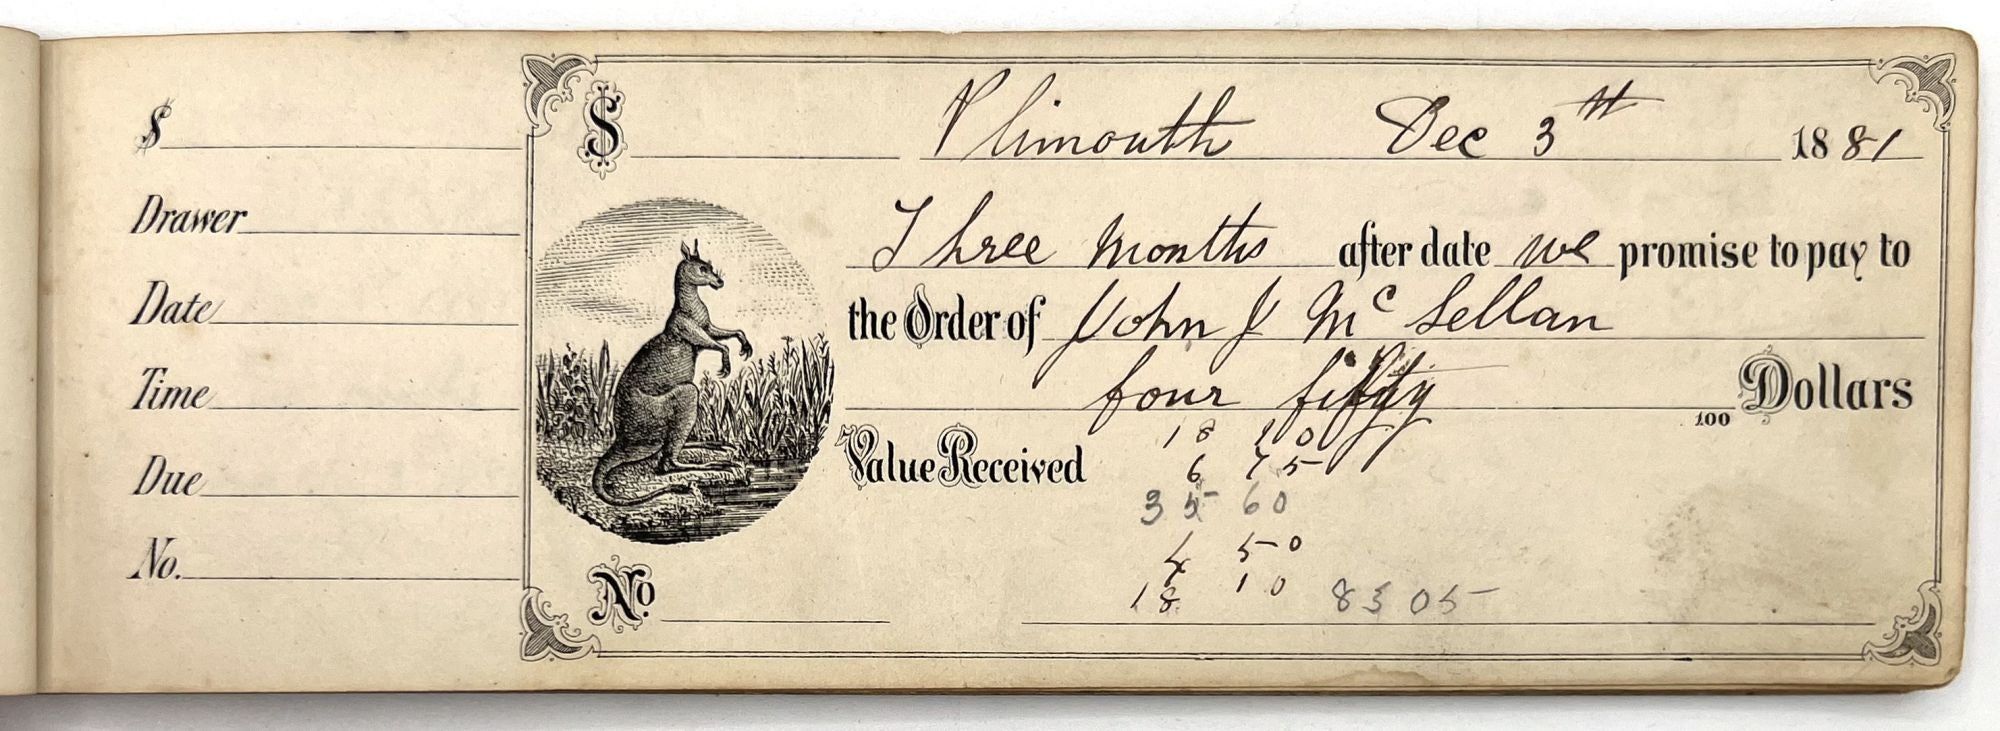 $
Drawer
Date
Time
Due
No.
$ Plimouth Dec 3th 1881
Three months after date we promise to pay to
the Order of John J McLellan
four fifty 100 Dollars
Value Received
18 10
6 75
35 60
4 50
18 10 83 05
No.